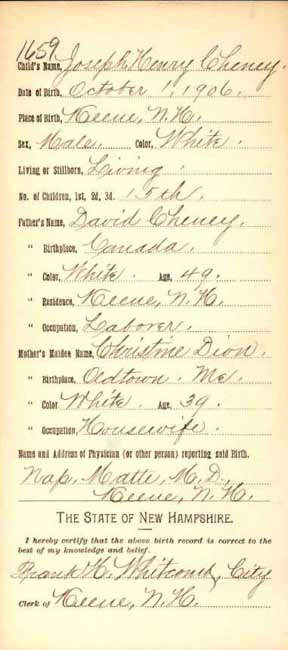 1659
Child's Name, Joseph Henry Cheney.
Date of Birth, October 1, 1906.
Place of Birth, Keene, N.H.
Sex, Male. Color, White.
Living or Stillborn, Living.
No. of Children, 1st, 2d, 3d. 15th.
Father's Name, David Cheney.
" Birthplace, Canada.
" Color, White. Age, 49.
" Residence, Keene, N.H.
" Occupation, Laborer.
Mother's Maiden Name, Christine Dion.
" Birthplace, Oldtown. Me.
" Color, White. Age, 39.
" Occupation, Housewife.
Name and Address of Physician (or other person) reporting said Birth.
Nap. Matte, M.D.,
Keene, N.H.
THE STATE OF NEW HAMPSHIRE.
I hereby certify that the above birth record is correct to the
best of my knowledge and belief.
Frank H. Whitcomb, City
Clerk of Keene, N.H.